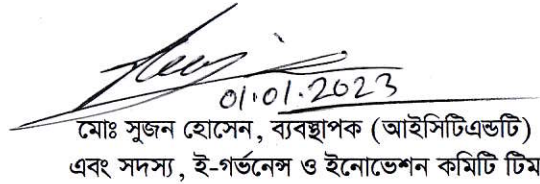 01.01.2023
মোঃ সুজন হোসেন, ব্যবস্থাপক (আইসিটিএন্ডটি)
এবং সদস্য, ই-গর্ভনেন্স ও ইনোভেশন কমিটি টিম